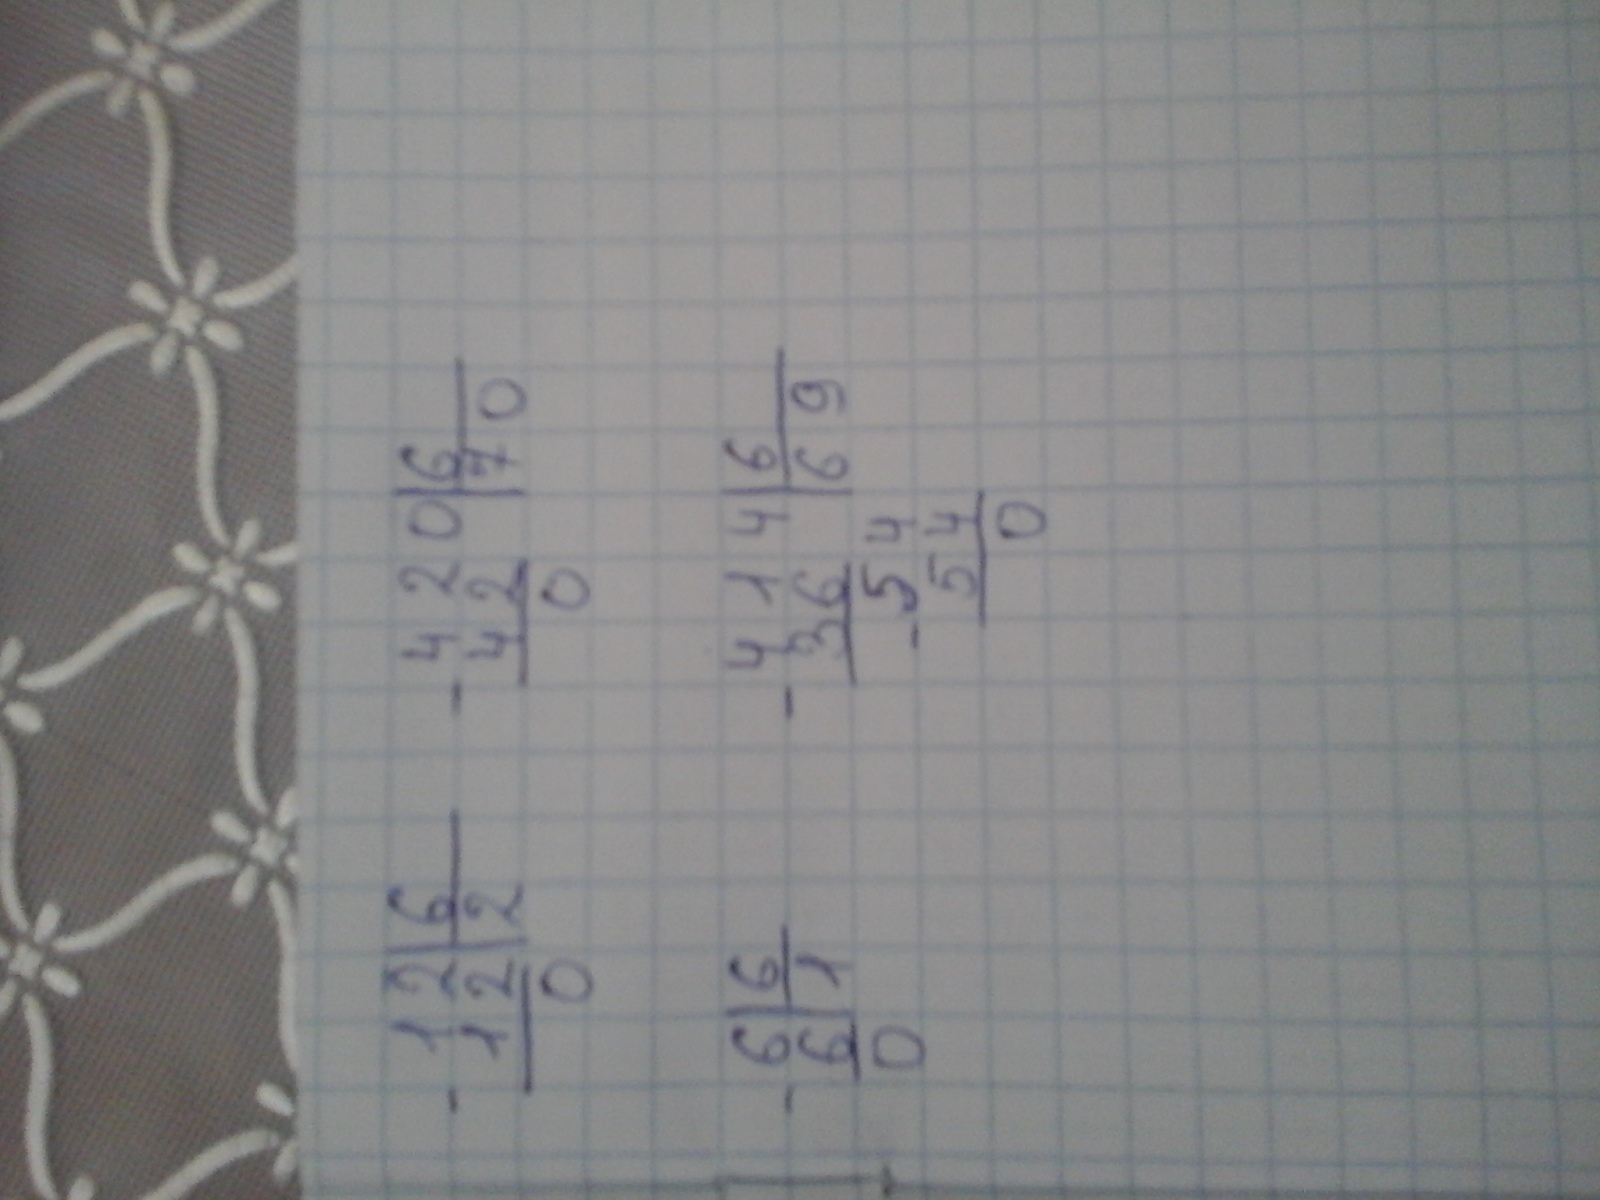 - 12 | 6 - 420 | 6
12 | 2 42 | 70
0 0
- 6 | 6 - 414 | 6
6 | 1 36 | 69
0 - 54
54
0